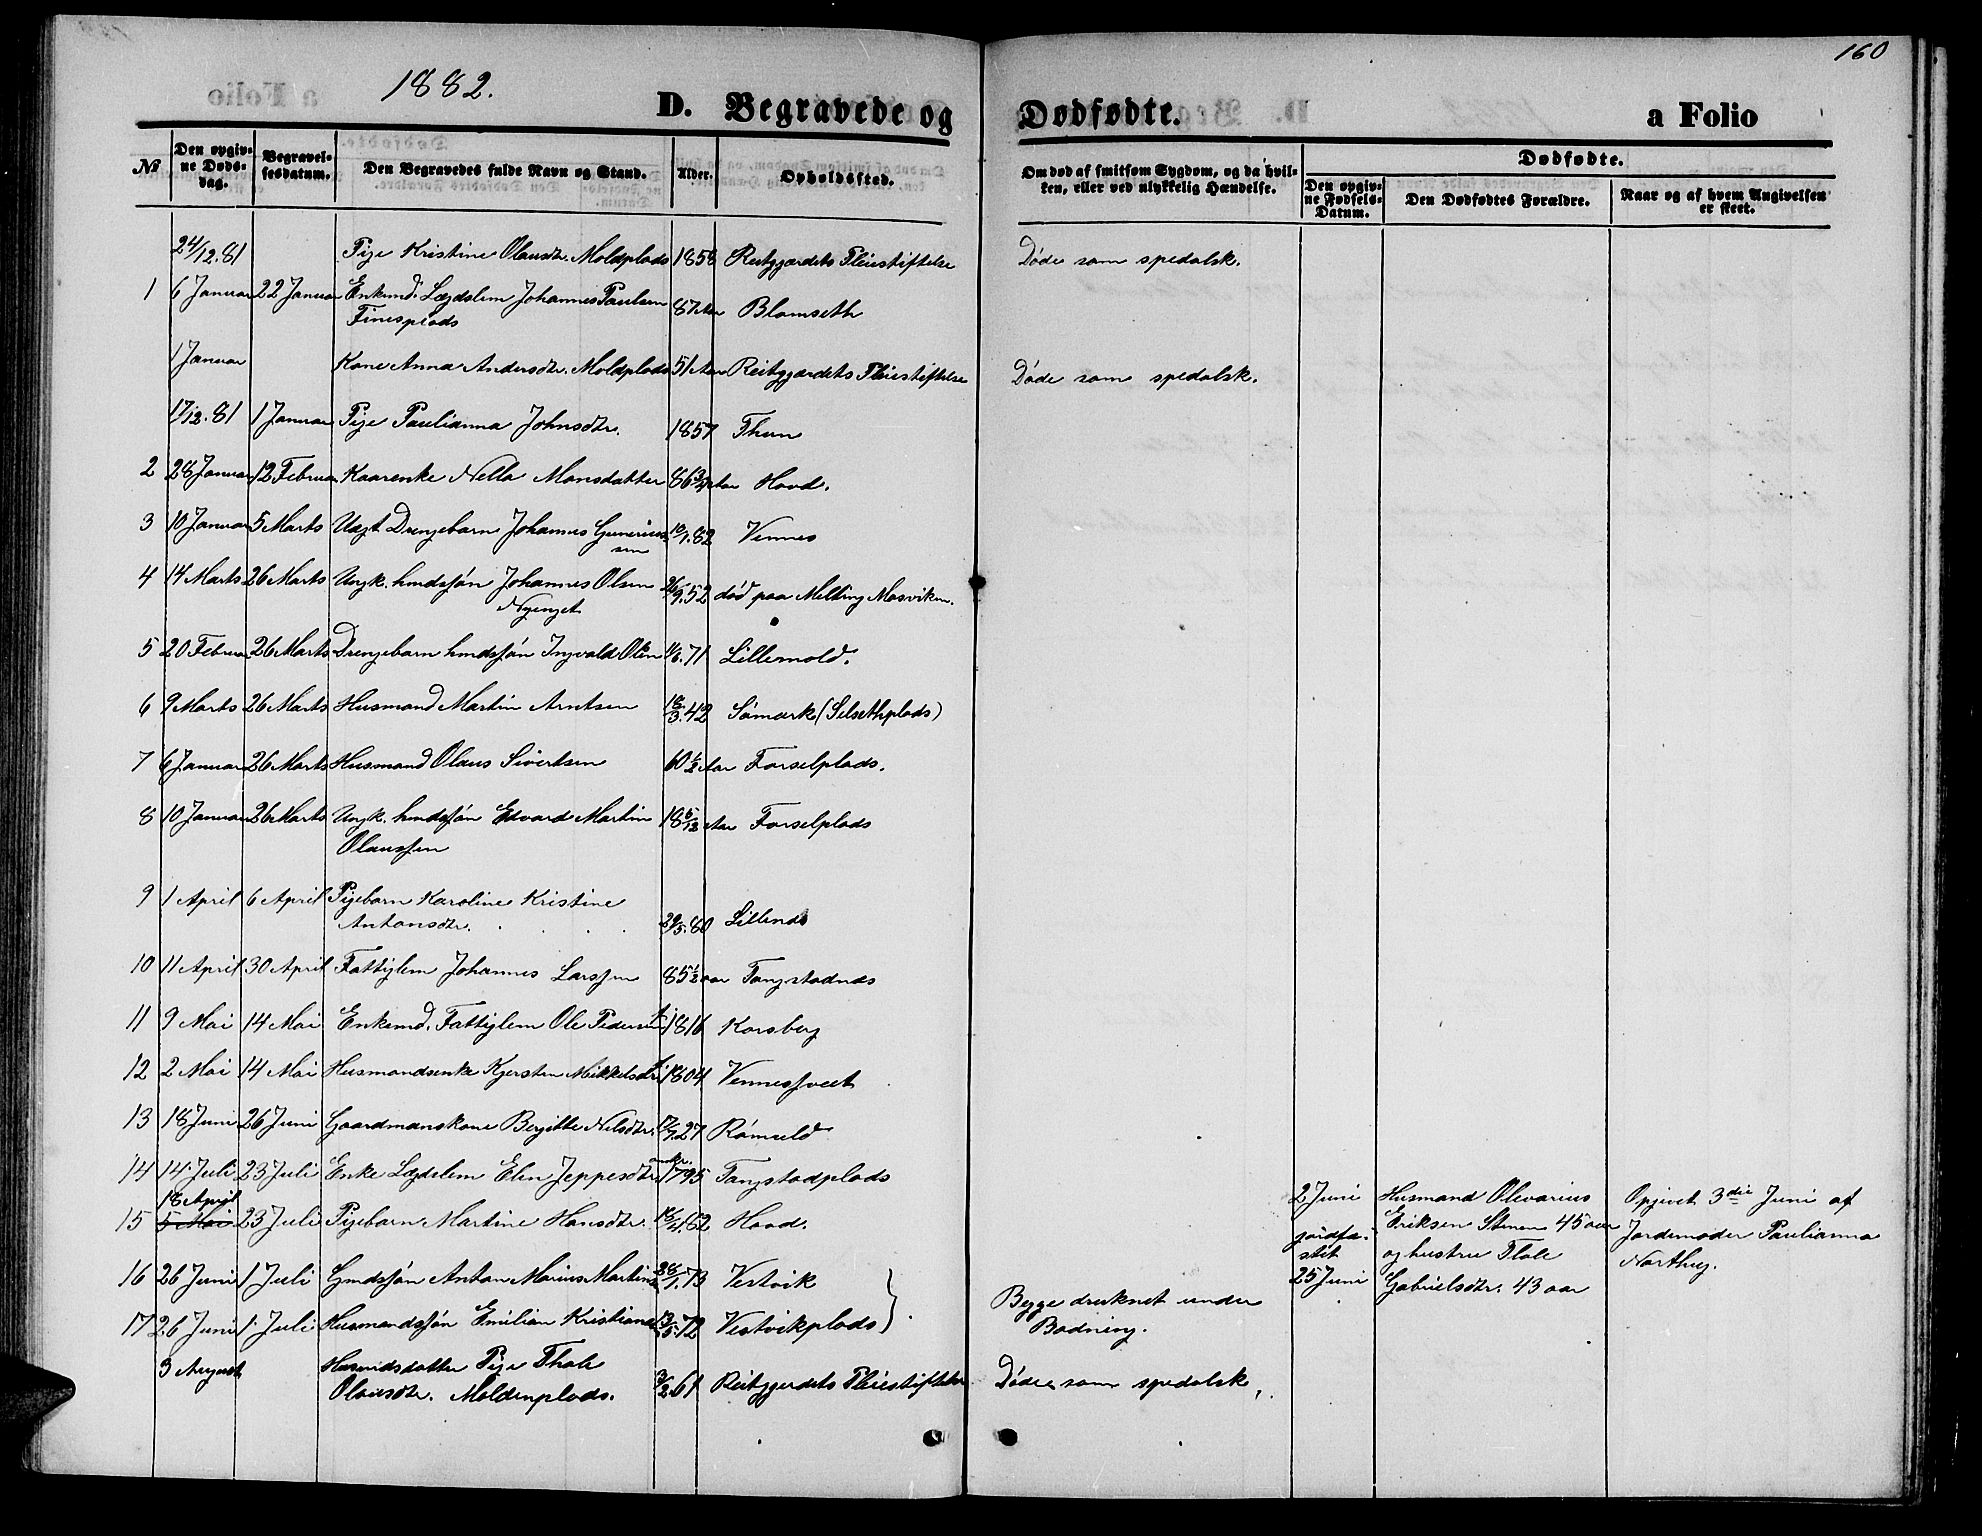 160
1882.
D. Begravede og Dødfødte. a Folio
№
Den opgivne Døds-dag.
Begravelsesdatum.
Den Begravedes fulde Navn og Stand.
Alder.
Opholdssted.
Om død af smitsom Sygdom, og da hvilken, eller ved ulykkelig Hændelse.
Dødfødte.
Den opgivne Fødsels-Datum.
Den Dødfødtes Forældre.
Naar og af hvem Angivelsen er skeet.
24/12.81 Pige Kristine Olausdtr. Moldplads 1858 Reitgjærdets Pleiestiftelse Døde som spedalsk.
1 6 Januar 22 Januar Enkemd. Lægdslem Johannes Paulsen 87 Aar Blomseth
Finesplads
1 Januar Kone Anna Andersdtr. Moldplads 51 Aar Reitgjærdets Pleiestiftelse Døde som spedalsk.
17/12.81 1 Januar Pige Paulianna Johnsdtr. 1857 Thun
2 28 Januar 12 Februar Kaarenke Nella Monsdatter 86 3/4 Aar Hovd.
3 10 Januar 5 Marts Uægt Drengebarn Johannes Guneriussen 10/1.82 Vennes
4 14 Marts 26 Marts Ungk. hmdssøn Johannes Olsen 26/9.52 død paa Melting Mosviken.
Nyenget
5 20 Februar 26 Marts Drengebarn hmdssøn Ingvald Olsen 11/6.71 Lillemold.
6 9 Marts 26 Marts Husmand Martin Arntsen 18/3.42 Sømark (Selsethplads)
7 6 Januar 26 Marts Husmand Olaus Sivertsen 60 1/2 Aar Forselplads.
8 10 Januar 26 Marts Ungk. hmdssøn Edvard Martin 18 5/12 Aar Forselplads
Olaussen
9 1 April 6 April Pigebarn Karoline Kristine
Antonsdtr. 29/5.80 Lillenes
10 11 April 30 April Fattiglem Johannes Larssen 85 1/2 aar Tangstadnes
11 9 Mai 14 Mai Enkemd. Fattiglem Ole Pedersen 1816 Korsberg
12 2 Mai 14 Mai Husmandsenke Kjersten Mikkelsdtr 1804 Vennessveet
13 18 Juni 26 Juni Gaardmanskone Bergitte Nilsdtr. 17/7.27 Rømseld
14 14 Juli 23 Juli Enke Lægdslem Elen Jeppesdtr 1795 Tangstadplads
18 April
15 5 Mai 23 Juli Pigebarn Martine Hansdtr. 16/4.82 Hovd.
16 26 Juni 1 Juli Gmdssøn Anton Marius Martins 28/1.73 Vestvik
17 26 Juni 1 Juli Husmandssøn Emilian Kristians 13/5.72 Vestvikplads
Begge druknet under
Badning.
3 August Husmdsdatter Pige Thale
Olausdtr. Moldenplads. 3/2.61 Reitgjerdets Pleiestiftelse Døde som spedalsk.
2 Juni
jordfæstet
25 Juni
Husmand Olevarius
Eriksen Stenen 45 aar
og hustru Thale
Gabrielsdtr. 43 aar
Opgivet 3die Juni af
Jordemoder Paulianna
Norshug.